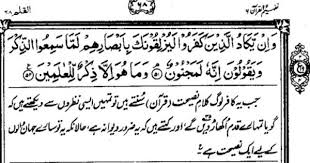 القلم ٦٨
٦٨
تفسیر القرآن ٦
وَاِنْ يَّكَادُ الَّذِيْنَ كَفَرُوْا لَيُزْلِقُوْنَكَ بِاَبْصَارِهِمْ لَمَّا سَمِعُوا الذِّكْرَ
وَيَقُوْلُوْنَ اِنَّهٗ لَمَجْنُوْنٌ ۝٥١ وَمَا هُوَ اِلَّا ذِكْرٌ لِّلْعٰلَمِيْنَ ۝٥٢
جب یہ کافر لوگ کلامِ نصیحت (قرآن) سُنتے ہیں تو تمہیں ایسی نظروں سے دیکھتے ہیں کہ
گویا تمہارے قدم اُکھاڑ دیں گے اور کہتے ہیں کہ یہ ضرور دیوانہ ہے، حالانکہ یہ تو سارے جہان والوں
کے لیے ایک نصیحت ہے۔